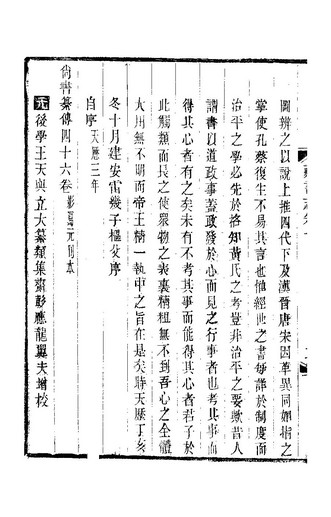 圖辨之以說上推四代下及漢晉唐宋因革異同如指之
掌使孔蔡復生不易其言也惟經世之書每詳於制度而
治平之學必先於格知黃氏之考豈非治平之要歟昔人
謂書以道政事蓋政發於心而見之行事者也考其事而
得其心者有之矣未有不考其事而能得其心者君子於
此觸類而長之衆物之表裏精粗無不到吾心之全體
大用無不明而帝王精一執中之旨在是矣時天歷丁亥
冬十月建安雷幾子樞父序
自序天歷三年
尚書纂傳四十六卷影寫元刊本
元後學王天與立大纂類集齋彭應龍翼夫增校